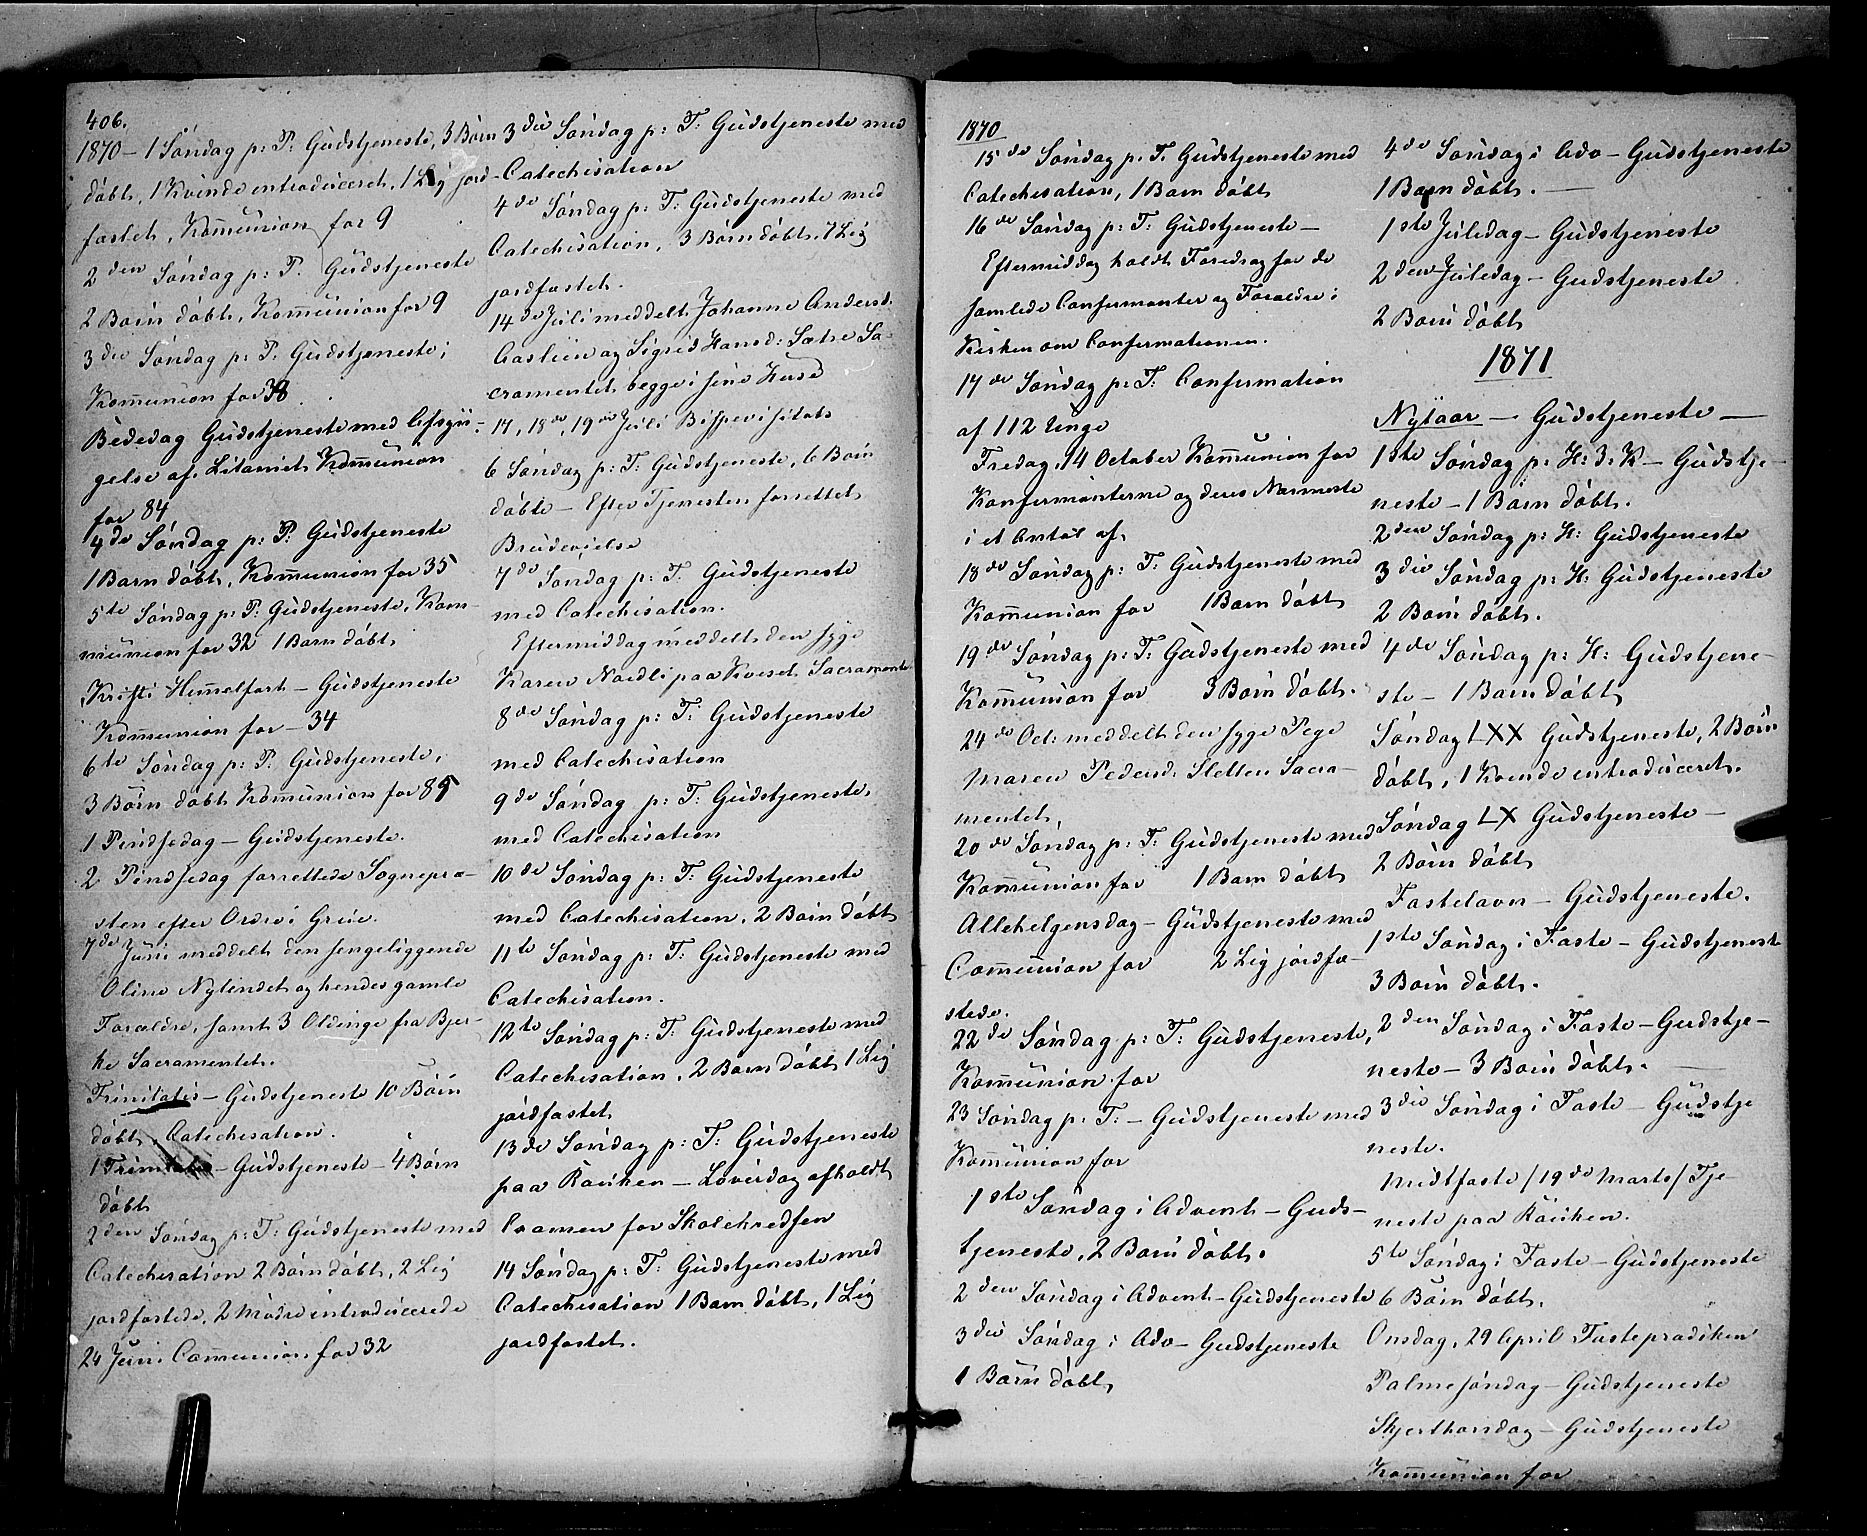 406.
1870 – 1 Søndag p: P. Gudstjeneste, 3 Børn
døbt, 1 Kvinde introduceret, 1 Lig jord-
fæstet, Kom̅union for 9
2den Søndag p: P. Gudstjeneste
2 Børn døbt, Kom̅union for 9
3die Søndag p: P: Gudstjeneste;
Kom̅union for 38
Bededag Gudstjeneste med Afsyn-
gelse af Litaniet, Kom̅union
for 84
4de Søndag p: P: Gudstjeneste
1 Barn døbt, Kom̅union for 35
5te Søndag p: P: Gudstjeneste, Kom-
munion for 32 1 Barn døbt
Kristi Himmelfart – Gudstjeneste
Kom̅union for – 34
6te Søndag p: P. Gudstjeneste,
3 Børn døbt Kom̅union for 85
1 Pindsedag – Gudstjeneste.
2 Pindsedag forrettede Sognepræ-
sten efter Ordre i Grue.
7de Juni meddelt den sengeliggende
Oline Nylendet og hendes gamle
Forældre, samt 3 Oldinge fra Bjer-
ke Sacramentet.
Trinitatis – Gudstjeneste 10 Børn
døbt, Catechisation.
1 Trinitatis – Gudstjeneste – 4 Børn
døbt
2den Søndag p: T: Gudstjeneste med
Catechisation 2 Børn døbt, 2 Lig
jordfæstede, 2 Mødre introducerede
24 Juni Com̅union for 32
3die Søndag p: T: Gudstjeneste med
Catechisation
4de Søndag p: T: Gudstjeneste med
Catechisation, 3 Børn døbt, 7 Lig
jordfæstet.
14de Juli meddelt Johanne Andersd:
Aasliën og Sigrid Hansd: Sætre Sa-
cramentet begge i sine Huse
17, 18de, 19de Juli Bispevisitats
6 Søndag p: T: Gudstjeneste, 6 Børn
døbte – Efter Tjenesten forrettet
Brudevielse
7de Søndag p: T: Gudstjeneste
med Catechisation.
Eftermiddag meddelt den syge
Karen Nordli paa Kveset Sacramente
8de Søndag p: T: Gudstjeneste
med Catechisation
9de Søndag p: T: Gudstjeneste
med Catechisation
10de Søndag p: T: Gudstjeneste
med Catechisation, 2 Børn døbt
11te Søndag p: T: Gudstjeneste med
Catechisation.
12te Søndag p: T: Gudstjeneste med
Catechisation, 2 Børn døbt 1 Lig
jordfæstet
13de Søndag p: T: Gudstjeneste
paa Røuken – Løverdag afholdt
Examen for Skolekredsen
14 Søndag p: T: Gudstjeneste med
Catechisation 1 Barn døbt, 1 Lig
jordfæstet.
1870
15de Søndag p. T. Gudstjeneste med
Catechisation, 1 Barn døbt
16de Søndag p: T: Gudstjeneste –
Eftermiddag holdt Foredrag for de
samlede Confirmanter og Forældre i
Kirken om Confirmationen.
17de Søndag p: T: Confirmation
af 112 Unge
Fredag 14 October Kom̅union for
Konfirmanterne og deres Nærmeste
i et Antal af
18de Søndag p: T: Gudstjeneste med
Kom̅union for 1 Barn døbt
19de Søndag p: T: Gudstjeneste med
Kom̅union for 3 Børn døbt.
24de Oct: meddelt den syge Pige
Maren Pedersd: Sletten Sacra-
mentet,
20de Søndag p: T: Gudstjeneste med
Kom̅union for 1 Barn døbt
Allehelgensdag – Gudstjeneste med
Com̅union for 2 Lig jordfæ-
stede.
22de Søndag p: T: Gudstjeneste,
Kom̅union for
23 Søndag p: T: – Gudstjeneste med
Kom̅union for
1ste Søndag i Advent – Guds-
tjeneste, 2 Børn døbt.
2den Søndag i Advent – Gudstjeneste
3die Søndag i Adv – Gudstjeneste
1 Barn døbt,
4de Søndag i Adv – Gudstjeneste
1 Barn døbt. –
1ste Juledag – Gudstjeneste
2den Juledag – Gudstjeneste
2 Børn døbt
1871
Nytaar – Gudstjeneste –
1ste Søndag p: H: 3: K – Gudstje-
neste – 1 Barn døbt.
2den Søndag p: H: Gudstjeneste
3die Søndag p: H: Gudstjeneste
2 Børn døbt.
4de Søndag p: H: Gudstjene-
ste – 1 Barn døbt
Søndag LXX Gudstjeneste, 2 Børn
døbt, 1 Kvinde introduceret.
Søndag LX Gudstjeneste –
2 Børn døbt
Fastelavn – Gudstjeneste.
1ste Søndag i Faste – Gudstjeneste
3 Børn døbt.
2den Søndag i Faste – Gudstje-
neste – 3 Børn døbt. –
3die Søndag i Faste – Gudstje
neste.
Midtfaste /19de Marts/ Tje-
neste paa Røuken.
5te Søndag i Faste – Gudstjeneste
6 Børn døbt.
Onsdag, 29 April Fasteprædiken
Palmesøndag – Gudstjeneste
Skjærthorsdag – Gudstjeneste
Kom̅union for